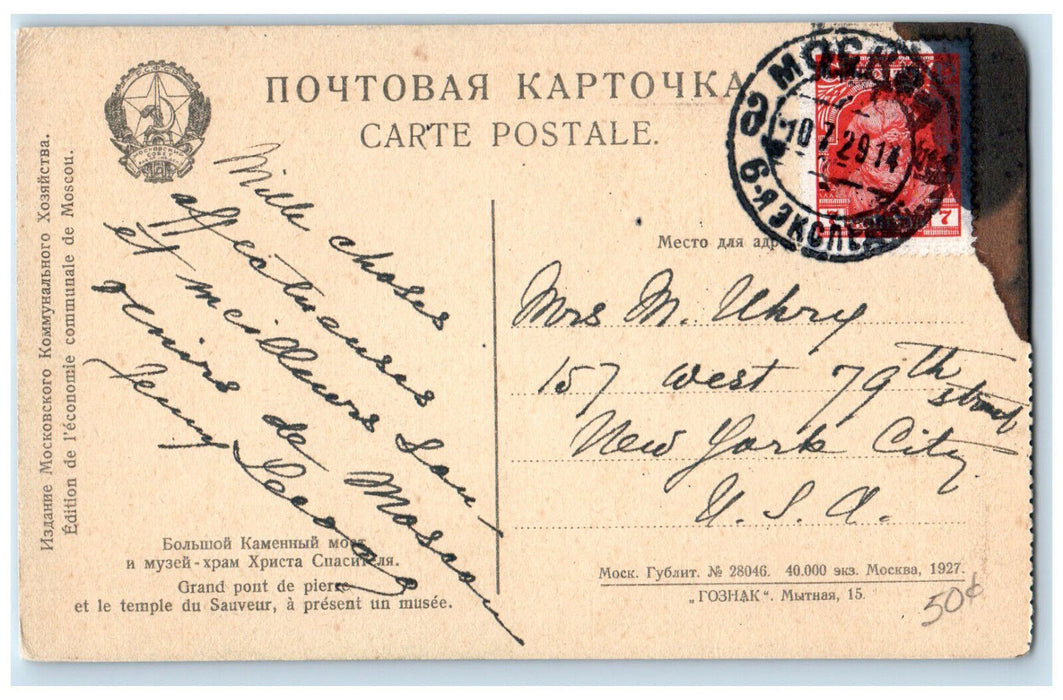 ПОЧТОВАЯ КАРТОЧКА
CARTE POSTALE.
Издание Московского Коммунального Хозяйства.
Édition de l'économie communale de Moscou.
Mille choses
affectueuses
et meilleurs sou-
venirs de Moscou
МОСКВА
10 7 29 14
6-я ЭКСПЕ
7
Место для адр
Mrs M. Uhry
157 West 79th street
New York City
U. S. A.
Большой Каменный мост
и музей-храм Христа Спасителя.
Grand pont de pierre
et le temple du Sauveur, à présent un musée.
Моск. Гублит. № 28046. 40.000 экз. Москва, 1927.
„ГОЗНАК“. Мытная, 15.
50¢